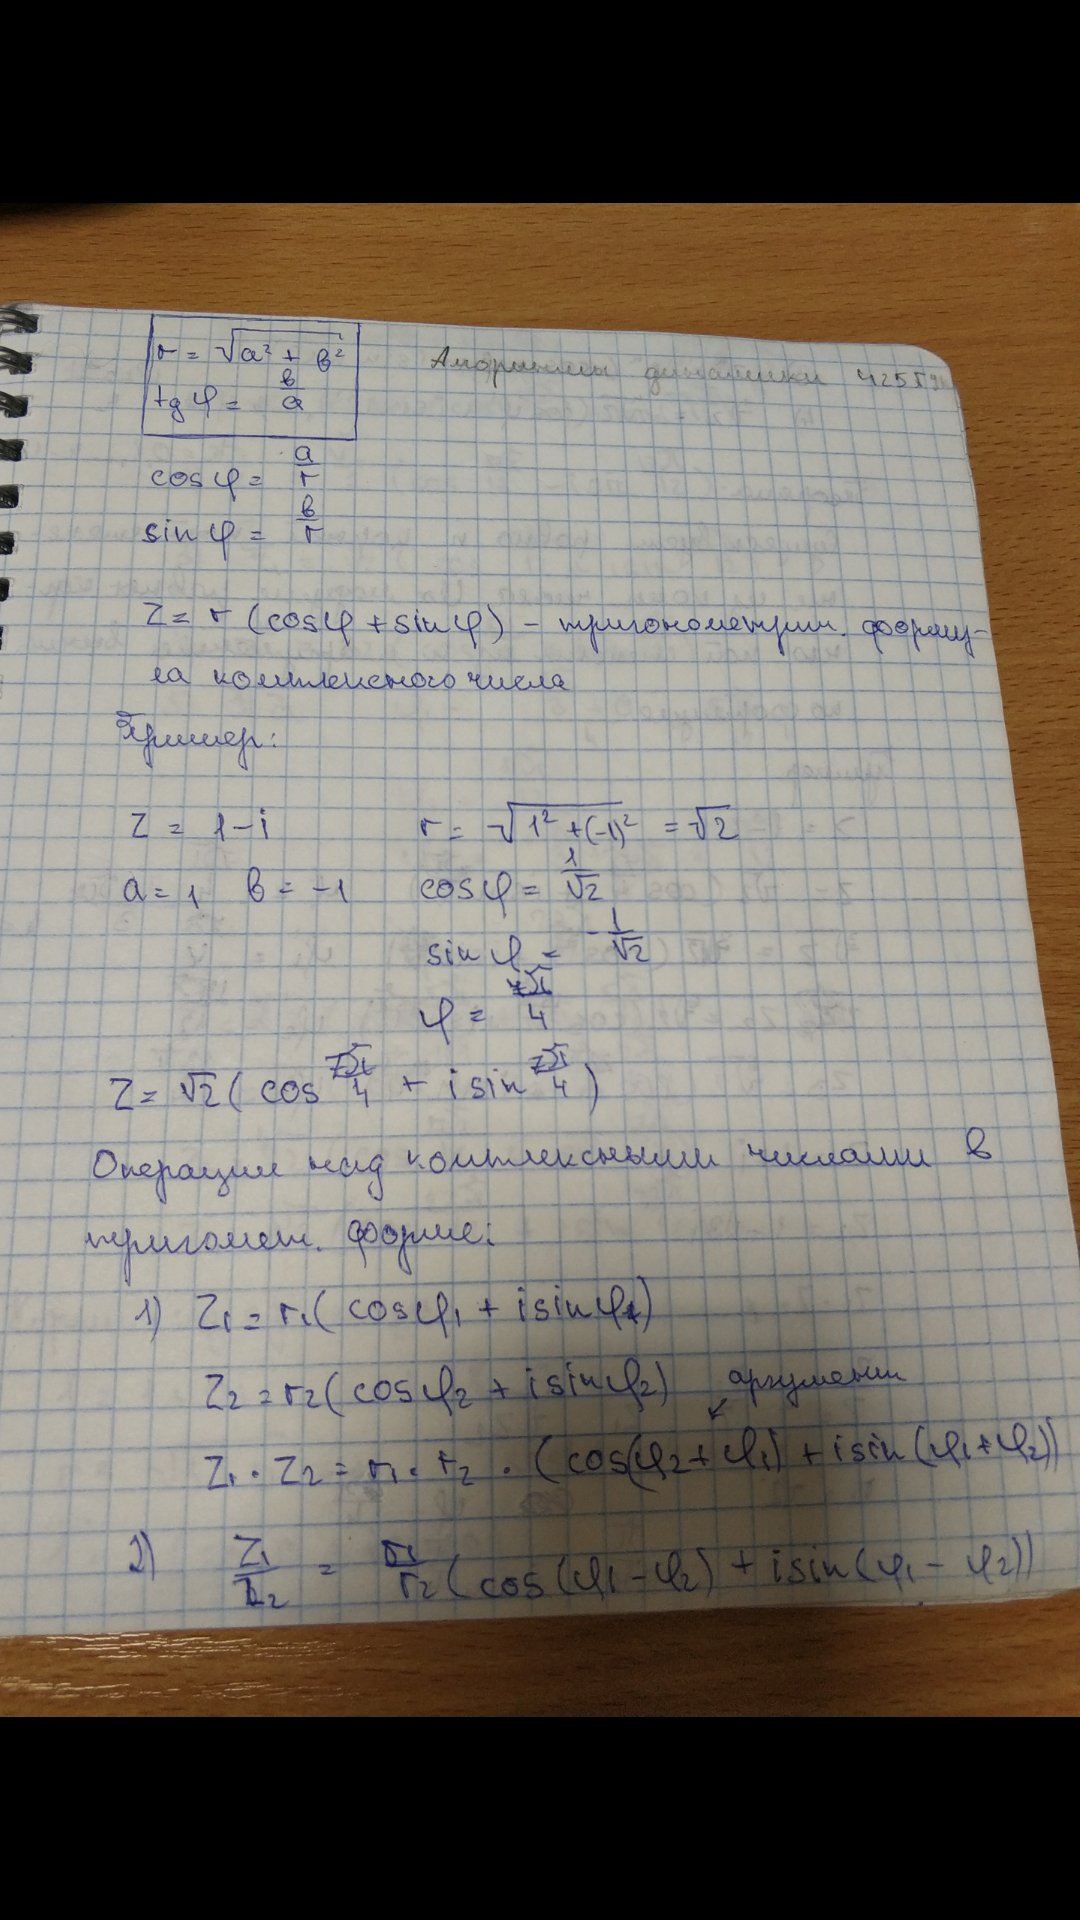 r = √a² + в²
tg φ = в/a
Алгоритмы динамики 425
cos φ = a/r
sin φ = в/r
Z = r (cos φ + sin φ) – тригонометрич. форму-
ла комплексного числа
Пример:
Z = 1 – i
r = √1² + (-1)² = √2
a = 1 в = -1
cos φ = 1/√2
sin φ = -1/√2
φ = 7π/4
Z = √2 ( cos 7π/4 + i sin 7π/4 )
Операции над комплексными числами в
тригомет. форме:
1) Z₁ = r₁ ( cos φ₁ + i sin φ₁)
Z₂ = r₂ ( cos φ₂ + i sin φ₂)
аргументы
Z₁ · Z₂ = r₁ · r₂ · (cos(φ₂ + φ₁) + i sin (φ₁ + φ₂))
2) Z₁/Z₂ = r₁/r₂ ( cos (φ₁ – φ₂) + i sin (φ₁ – φ₂))